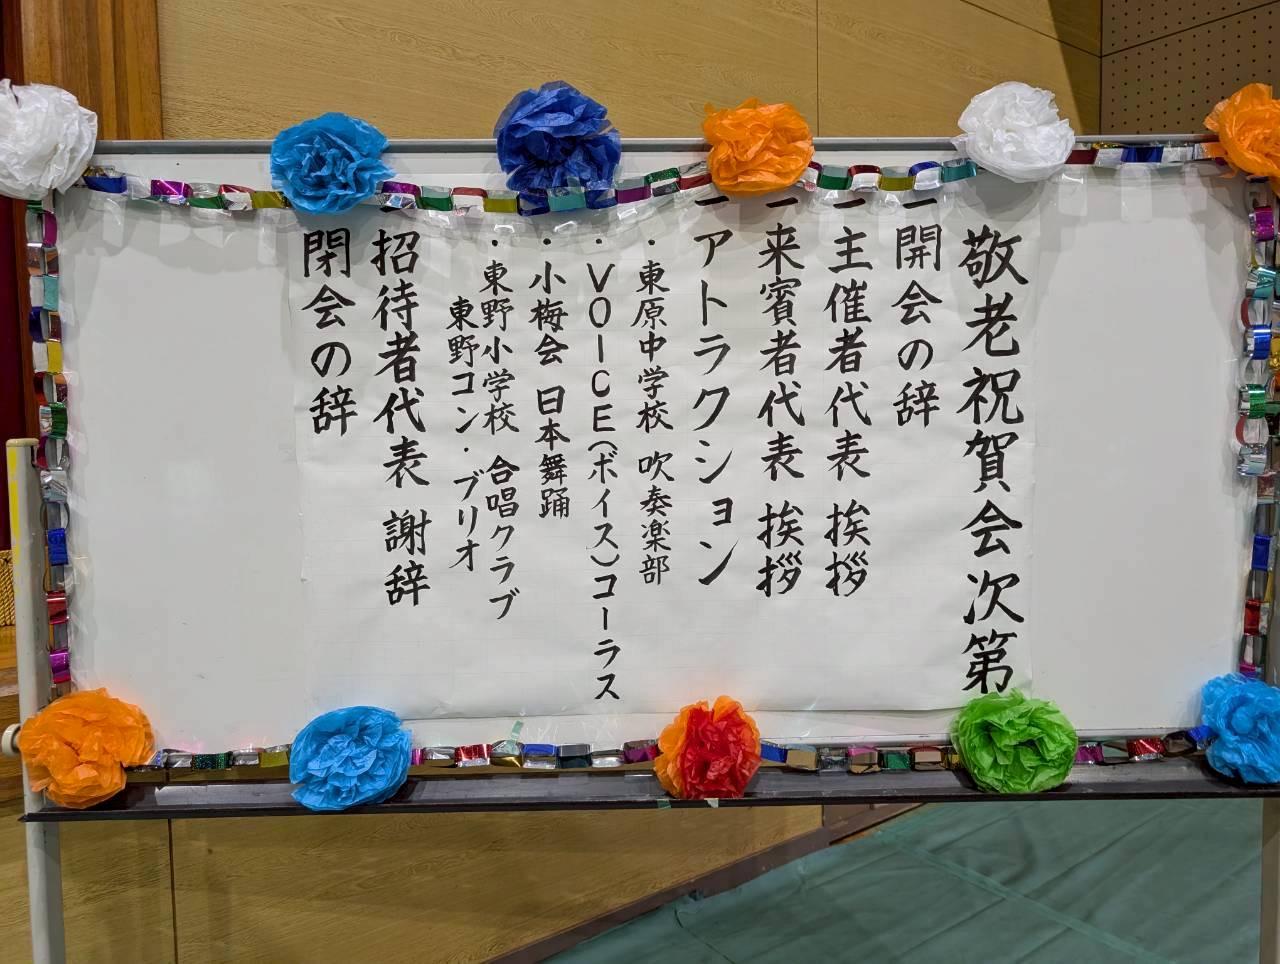 敬老祝賀会次第
一 開会の辞
一 主催者代表 挨拶
一 来賓者代表 挨拶
一 アトラクション
・東原中学校 吹奏楽部
・VOICE(ボイス)コーラス
・小梅会 日本舞踊
・東野小学校 合唱クラブ
東野コン・ブリオ
一 招待者代表 謝辞
閉会の辞